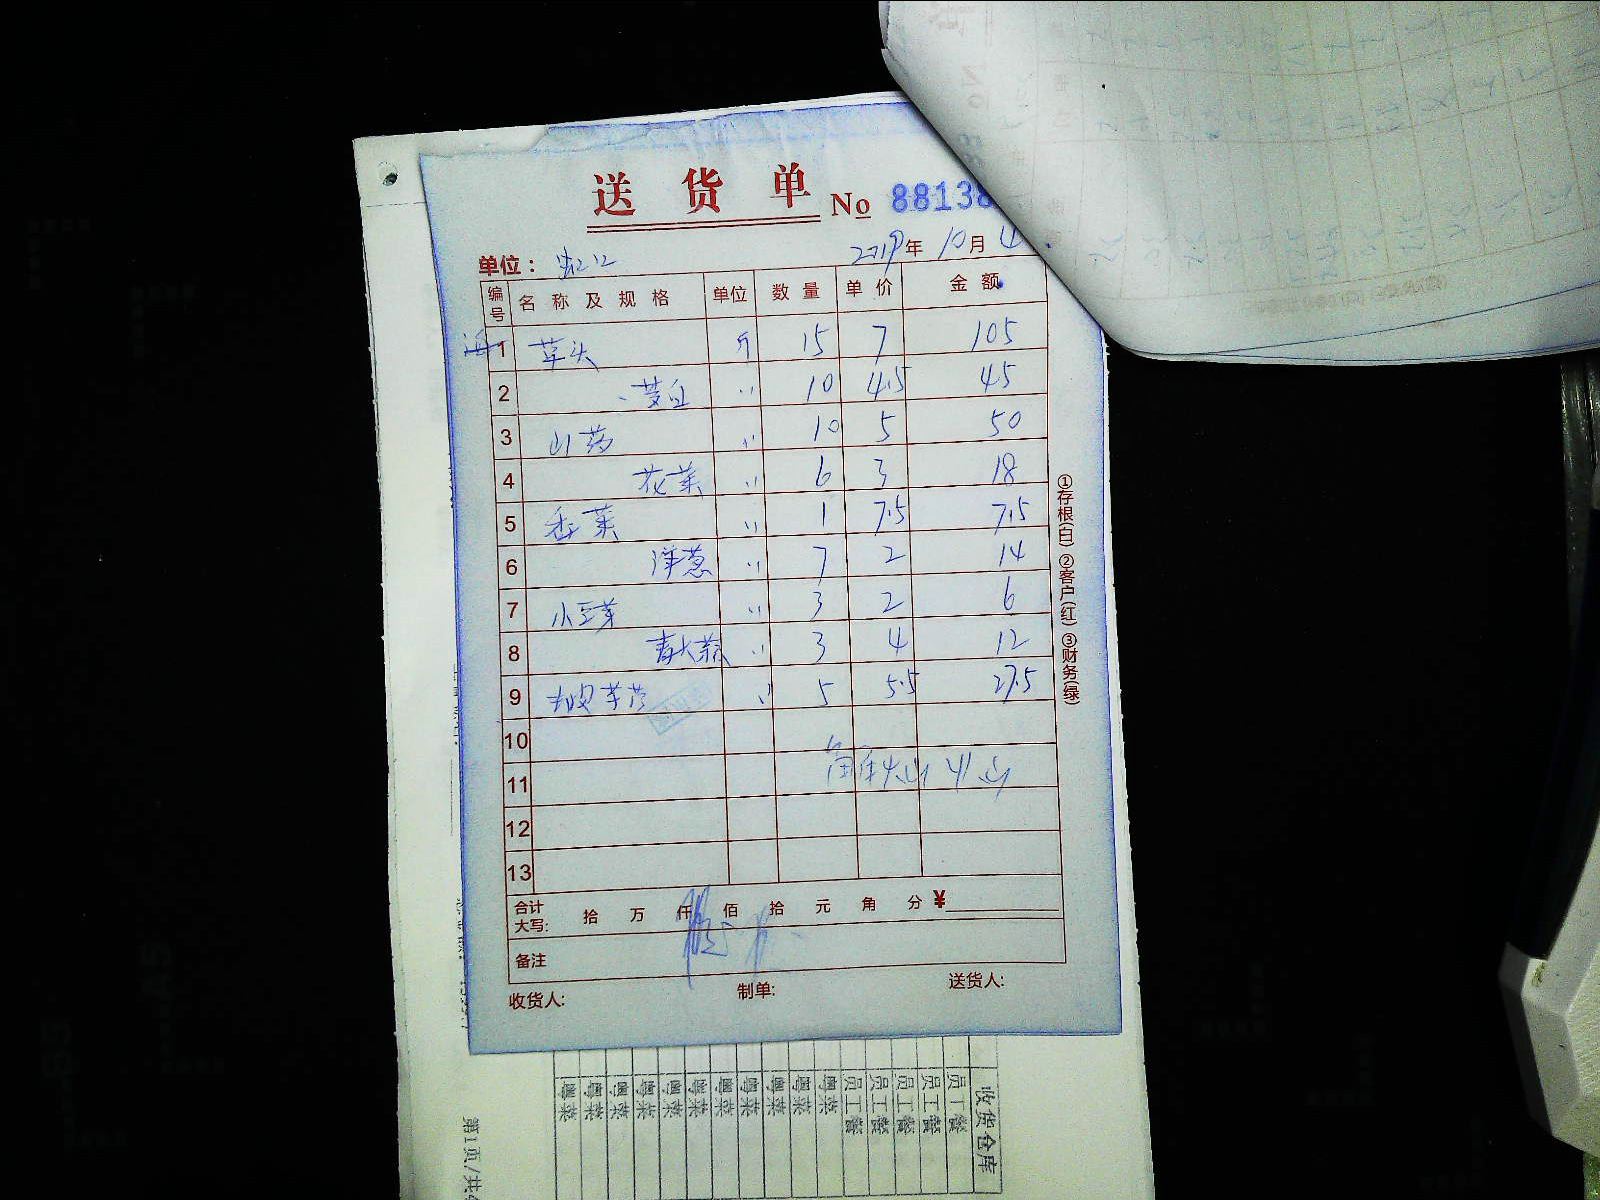 送货单 No 88138
单位： 2019年 10月 4
编号 名称及规格 单位 数量 单价 金额
1 草头 斤 15 7 105
2 茭白 〃 10 4.5 45
3 山药 〃 10 5 50
4 花菜 〃 6 3 18
5 香菜 〃 1 7.5 7.5
6 洋葱 〃 7 2 14
7 小豆芽 〃 3 2 6
8 青大蒜 〃 3 4 12
9 〃 5 5.5 27.5
10
11
12
13
合计大写: 拾 万 仟 佰 拾 元 角 分 ¥
备注
收货人: 制单: 送货人:
①存根(白) ②客户(红) ③财务(绿)
收货仓库
员工餐
员工餐
员工餐
员工餐
员工餐
粤菜
粤菜
粤菜
粤菜
粤菜
粤菜
粤菜
粤菜
粤菜
粤菜
粤菜
第1页/共